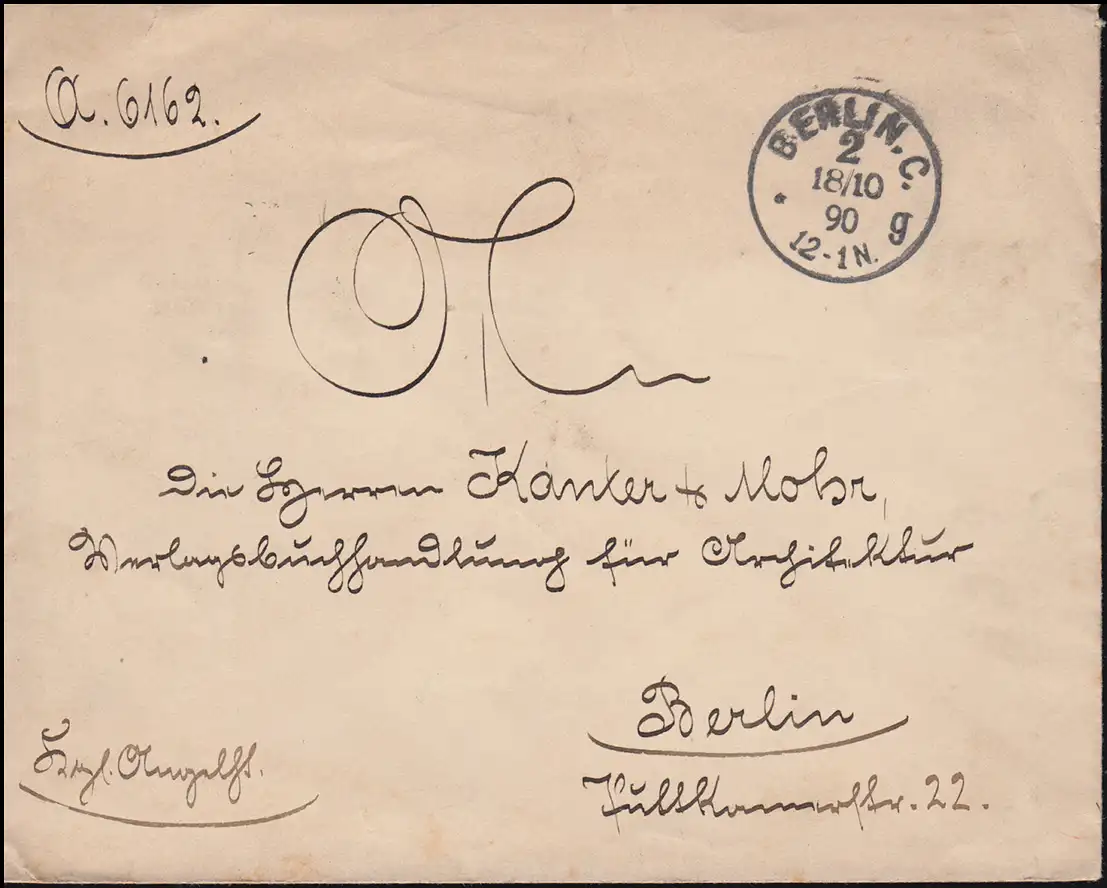 A. 6162.
BERLIN. C.
2
18/10
90 g
12-1N.
An
die Herren Kanter & Mohr,
Verlagsbuchhandlung für Architektur
Berlin
Kgl. Angelht.
Puttkamerstr. 22.